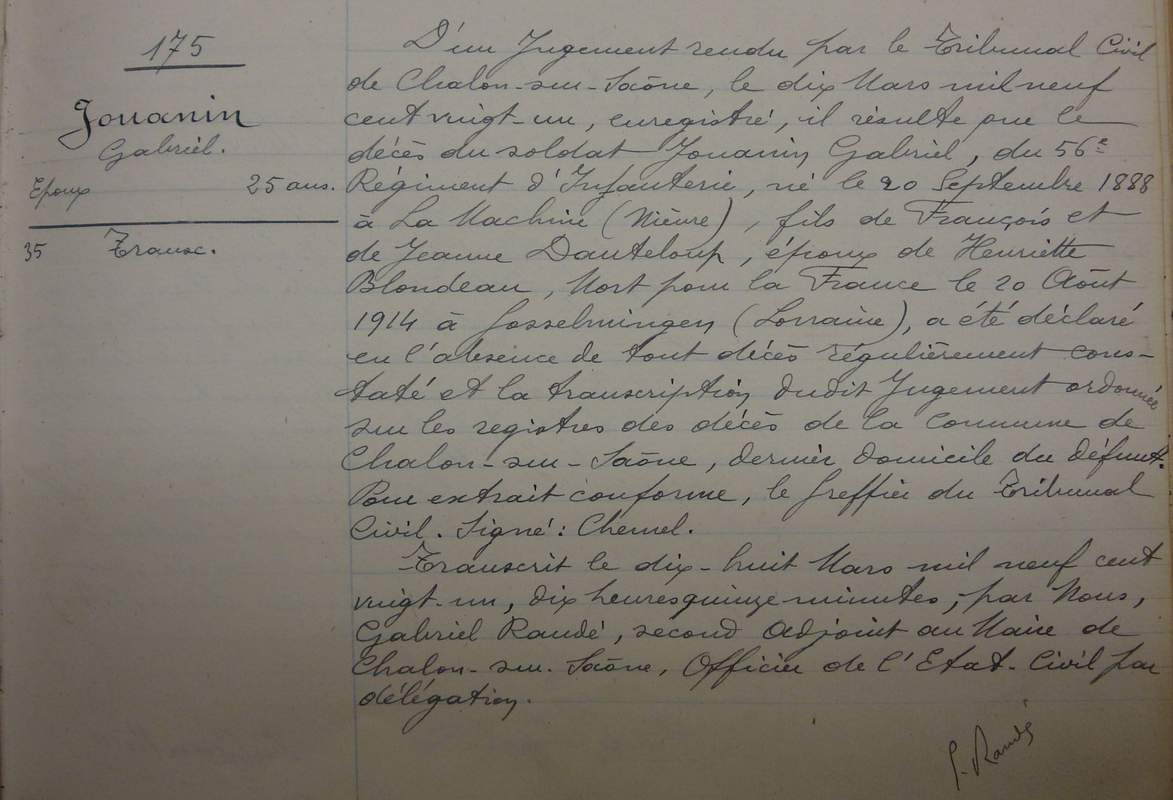 175
Jouanin
Gabriel.
Epoux 25 ans.
35 Transc.
D'un Jugement rendu par le Tribunal Civil
de Chalon-sur-Saône, le dix Mars mil neuf
cent vingt-un, enregistré, il résulte que le
décès du soldat Jouanin Gabriel, du 56e
Régiment d'Infanterie, né le 20 Septembre 1888
à La Machine (Nièvre), fils de François et
de Jeanne Dauteloup, époux de Henriette
Blondeau, Mort pour la France le 20 Août
1914 à Gosselmingen (Lorraine), a été déclaré
en l'absence de tout décès régulièrement cons-
taté et la transcription dudit Jugement ordonnée
sur les registres des décès de la Commune de
Chalon-sur-Saône, dernier domicile du défunt.
Pour extrait conforme, le Greffier du Tribunal
Civil. Signé: Chemel.
Transcrit le dix-huit Mars mil neuf cent
vingt-un, dix heures quinze minutes, par Nous,
Gabriel Raudé, second adjoint au Maire de
Chalon-sur-Saône, Officier de l'Etat-Civil par
délégation.
G. Raudé